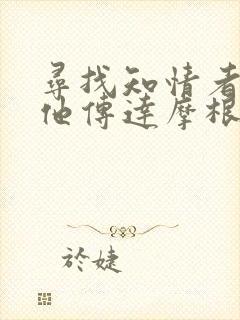 尋找知情者
他傳達摩根
於婕